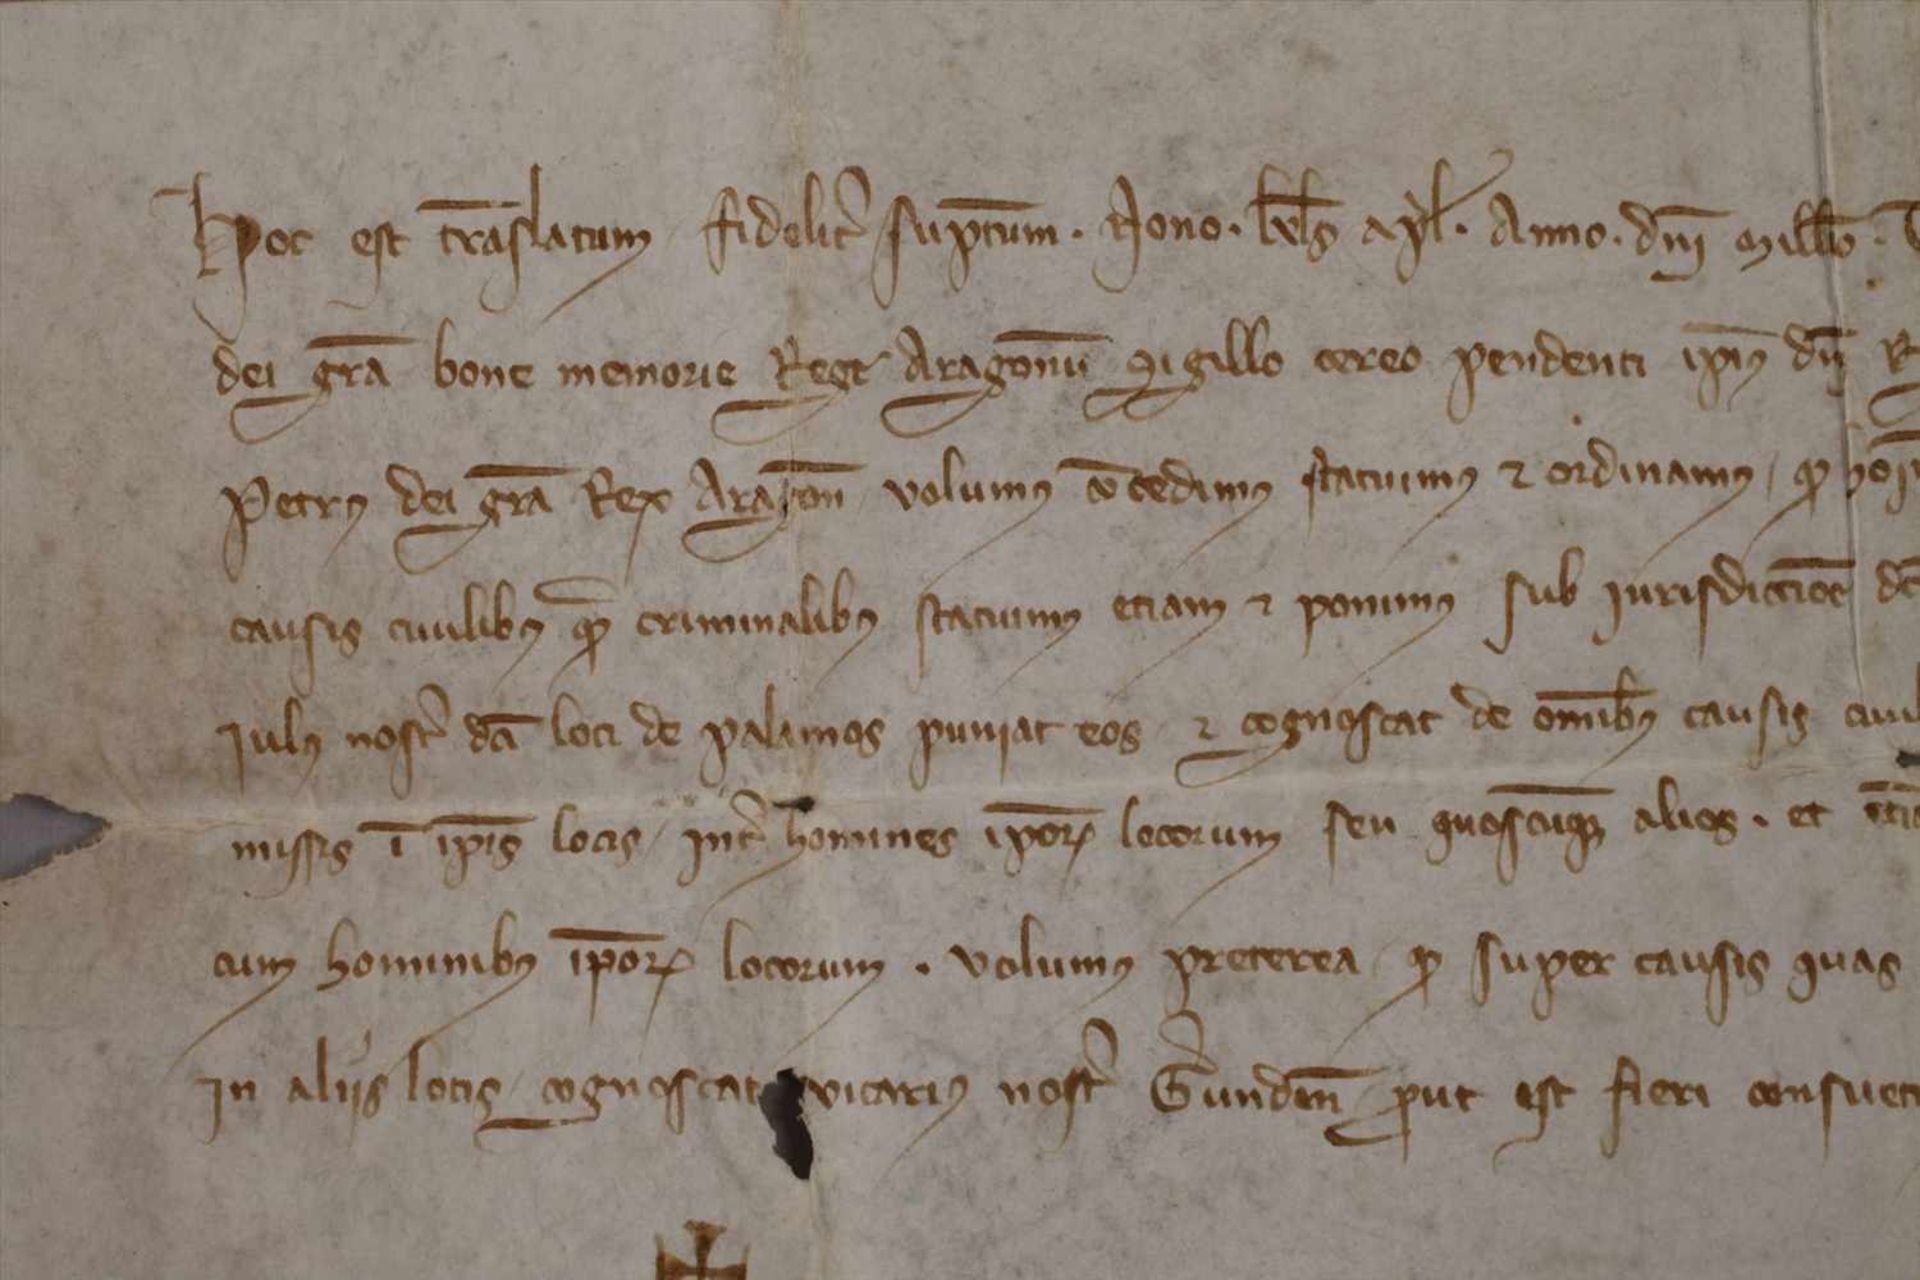 Hoc est trāslatum fidelit̉ sūptum. Nono. kl̄s apl̉. Anno. dn̄i Mill̄o.
dei gr̄a bone memorie Reg̉ Aragonū Sigillo cereo pendenti ip̄iꝰ dn̄i R
Petrꝰ dei gr̄a Rex Aragon̄ volumꝰ cōcedimꝰ statuimꝰ ⁊ ordinamꝰ, qđ hoī
causis ciuilibꝰ qm̄ criminalibꝰ statuimꝰ etiam ⁊ ponimꝰ sub iurisdiccioē dc̄
iulꝰ nost̉ dc̄i loci de palamos puniat eos ⁊ cognoscat de om̄ibꝰ causis ciuil
missis ī ip̄is locis, int̉ homines ip̄oꝝ locorum seu quoscūqꝫ alios. et eciā
cum hominibꝰ ip̄oꝝ locorum. volumꝰ preterea qđ super causis quas
in aliis locis cognoscat vicariꝰ nost̉ G̉unden̄ ꝓut est fieri consueti